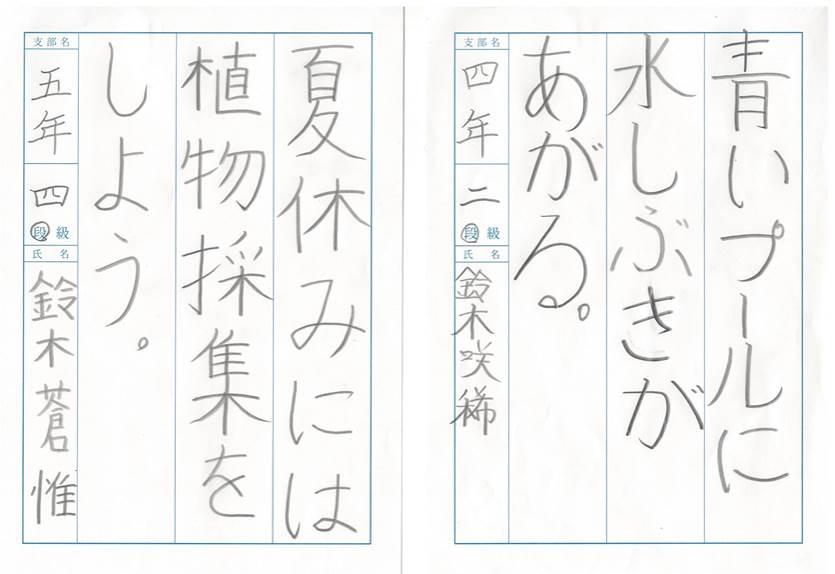 青いプールに
水しぶきが
あがる。
支部名
四年
二
段級
氏名
鈴木咲稀
夏休みには
植物採集を
しよう。
支部名
五年
四
段級
氏名
鈴木蒼惟